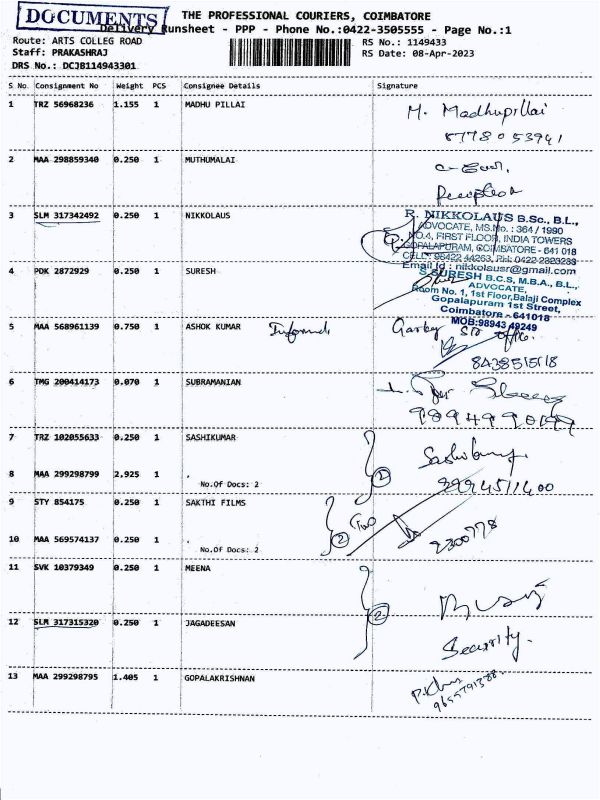 DOCUMENTS
THE PROFESSIONAL COURIERS, COIMBATORE
Delivery Runsheet - PPP - Phone No.:0422-3505555 - Page No.:1
Route: ARTS COLLEG ROAD
RS No.: 1149433
Staff: PRAKASHRAJ
RS Date: 08-Apr-2023
DRS No.: DCJB114943301
S No. Consignment No Weight PCS Consignee Details Signature
1 TRZ 56968236 1.155 1 MADHU PILLAI M. Madhupillai
8778053941
2 MAA 298859340 0.250 1 MUTHUMALAI
Reception
3 SLM 317342492 0.250 1 NIKKOLAUS
R. NIKKOLAUS B.Sc., B.L.,
ADVOCATE, MS.No. : 364 / 1990
NO.4, FIRST FLOOR, INDIA TOWERS
GOPALAPURAM, COIMBATORE - 641 018
CELL: 98422 44263, PH: 0422 2823233
Email Id : nikkolsusr@gmail.com
4 PDK 2872929 0.250 1 SURESH
S.SURESH B.C.S, M.B.A., B.L.,
ADVOCATE,
Room No. 1, 1st Floor, Balaji Complex
Gopalapuram 1st Street,
Coimbatore - 641018
MOB:98943 49249
5 MAA 568961139 0.750 1 ASHOK KUMAR
8438515118
6 TMG 200414173 0.070 1 SUBRAMANIAN
7 TRZ 102055633 0.250 1 SASHIKUMAR Sashikumar
8 MAA 299298799 2.925 1 .
No.Of Docs: 2
2
9994511400
9 STY 854175 0.250 1 SAKTHI FILMS
Two
10 MAA 569574137 0.250 1 .
No.Of Docs: 2
2
2300778
11 SVK 10379349 0.250 1 MEENA
2
12 SLM 317315320 0.250 1 JAGADEESAN
Security.
13 MAA 299298795 1.405 1 GOPALAKRISHNAN